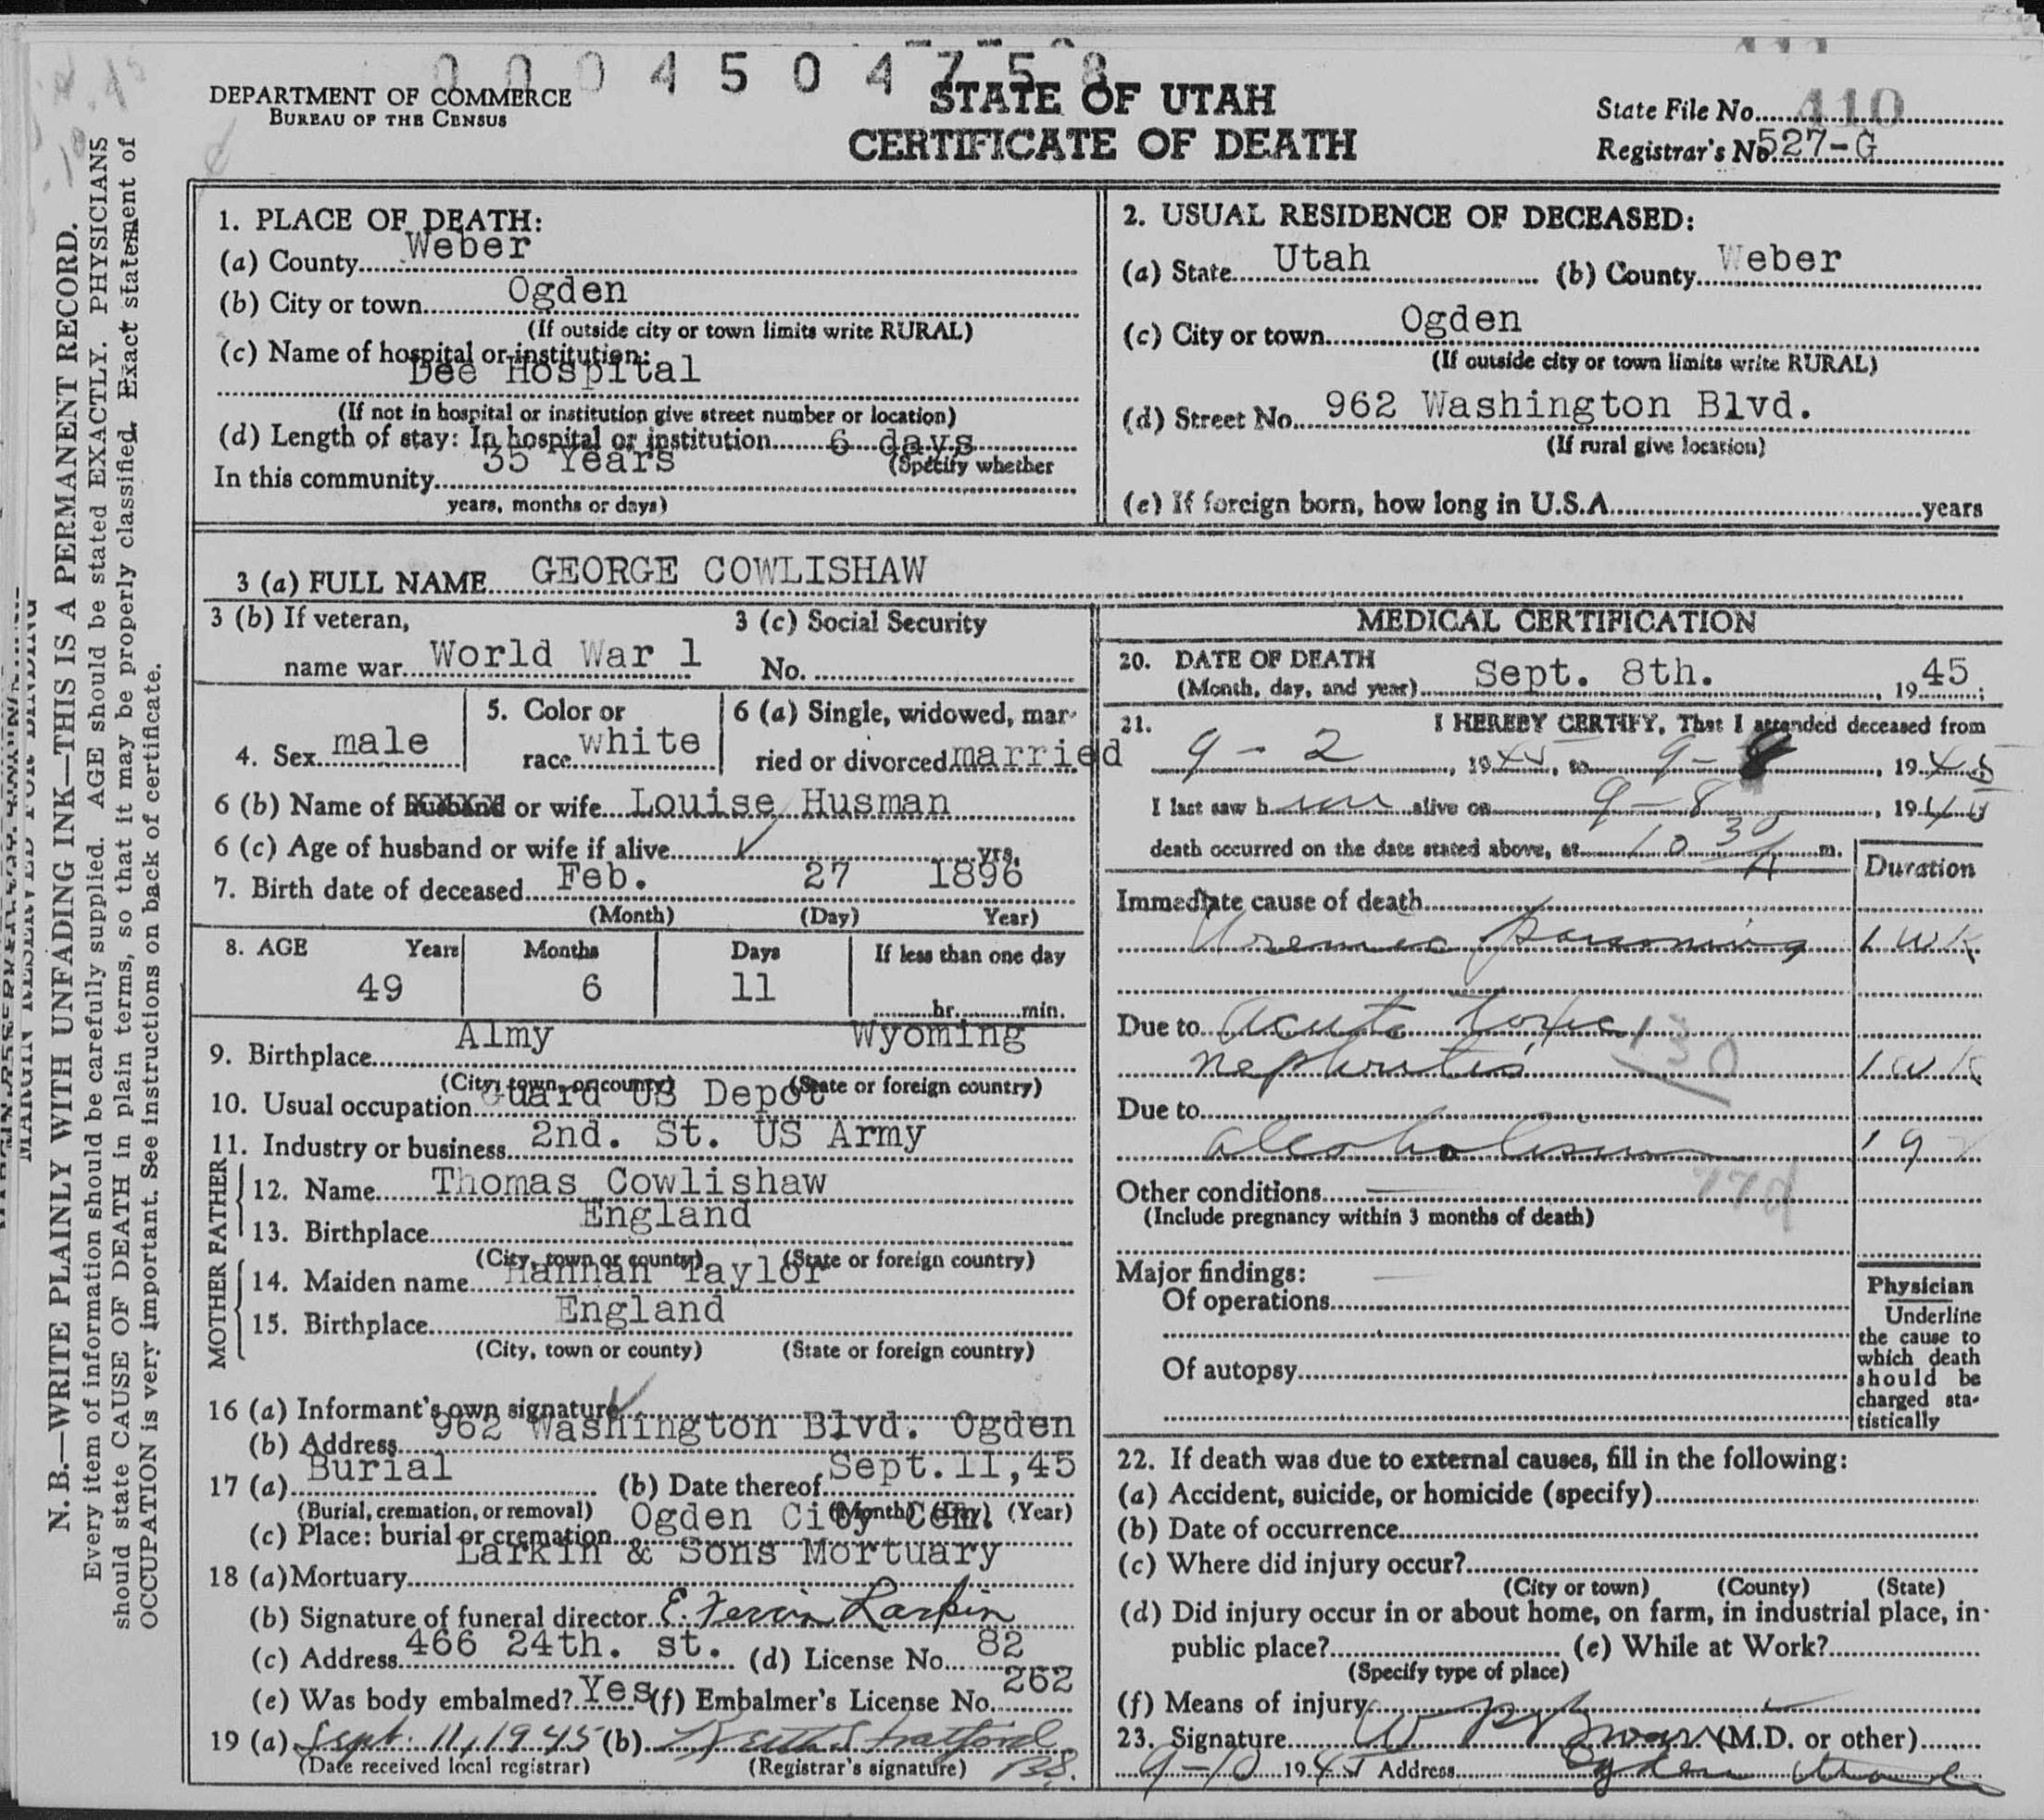 000450 4758
DEPARTMENT OF COMMERCE
BUREAU OF THE CENSUS
STATE OF UTAH
CERTIFICATE OF DEATH
State File No. 410
Registrar's No. 527-G
N. B.—WRITE PLAINLY WITH UNFADING INK—THIS IS A PERMANENT RECORD.
Every item of information should be carefully supplied. AGE should be stated EXACTLY. PHYSICIANS
should state CAUSE OF DEATH in plain terms, so that it may be properly classified. Exact statement of
OCCUPATION is very important. See instructions on back of certificate.
1. PLACE OF DEATH:
(a) County Weber
(b) City or town Ogden
(If outside city or town limits write RURAL)
(c) Name of hospital or institution:
Dee Hospital
(If not in hospital or institution give street number or location)
(d) Length of stay: In hospital or institution 6 days
(Specify whether
In this community 35 Years
years, months or days)
2. USUAL RESIDENCE OF DECEASED:
(a) State Utah (b) County Weber
(c) City or town Ogden
(If outside city or town limits write RURAL)
(d) Street No. 962 Washington Blvd.
(If rural give location)
(e) If foreign born, how long in U.S.A. years
3 (a) FULL NAME GEORGE COWLISHAW
3 (b) If veteran,
name war World War 1
3 (c) Social Security
No.
4. Sex male
5. Color or
race white
6 (a) Single, widowed, mar-
ried or divorced married
6 (b) Name of husband or wife Louise Husman
6 (c) Age of husband or wife if alive yrs.
7. Birth date of deceased Feb. 27 1896
(Month) (Day) Year)
8. AGE Years Months Days If less than one day
49 6 11
hr. min.
9. Birthplace Almy Wyoming
(City, town, or county) (State or foreign country)
10. Usual occupation Guard US Depot
11. Industry or business 2nd. St. US Army
FATHER
12. Name Thomas Cowlishaw
13. Birthplace England
(City, town or county) (State or foreign country)
MOTHER
14. Maiden name Hannah Taylor
15. Birthplace England
(City, town or county) (State or foreign country)
16 (a) Informant's own signature
(b) Address 962 Washington Blvd. Ogden
17 (a) Burial (b) Date thereof Sept.11,45
(Burial, cremation, or removal) (Month) (Day) (Year)
(c) Place: burial or cremation Ogden City Cem.
18 (a) Mortuary Larkin & Sons Mortuary
(b) Signature of funeral director E. Fervin Larkin
(c) Address 466 24th. st. (d) License No. 82
(e) Was body embalmed? Yes (f) Embalmer's License No. 262
19 (a) Sept. 11, 1945 (b) Stratford
(Date received local registrar) (Registrar's signature)
MEDICAL CERTIFICATION
20. DATE OF DEATH
(Month, day, and year) Sept. 8th. , 19 45;
21. I HEREBY CERTIFY, That I attended deceased from
9 - 2 , 19 45, to 9 - 8 , 19 45
I last saw h im alive on 9 - 8 , 19 45
death occurred on the date stated above, at 10 30 A m.
Duration
Immediate cause of death
Uremic poisoning 1 wk
Due to acute toxic
nephritis 1 wk
130
Due to
alcoholism
77d
Other conditions
(Include pregnancy within 3 months of death)
Major findings:
Of operations
Of autopsy
Physician
Underline
the cause to
which death
should be
charged sta-
tistically
22. If death was due to external causes, fill in the following:
(a) Accident, suicide, or homicide (specify)
(b) Date of occurrence
(c) Where did injury occur?
(City or town) (County) (State)
(d) Did injury occur in or about home, on farm, in industrial place, in-
public place? (e) While at Work?
(Specify type of place)
(f) Means of injury
23. Signature (M.D. or other)
9-10 19 45 Address Ogden Utah